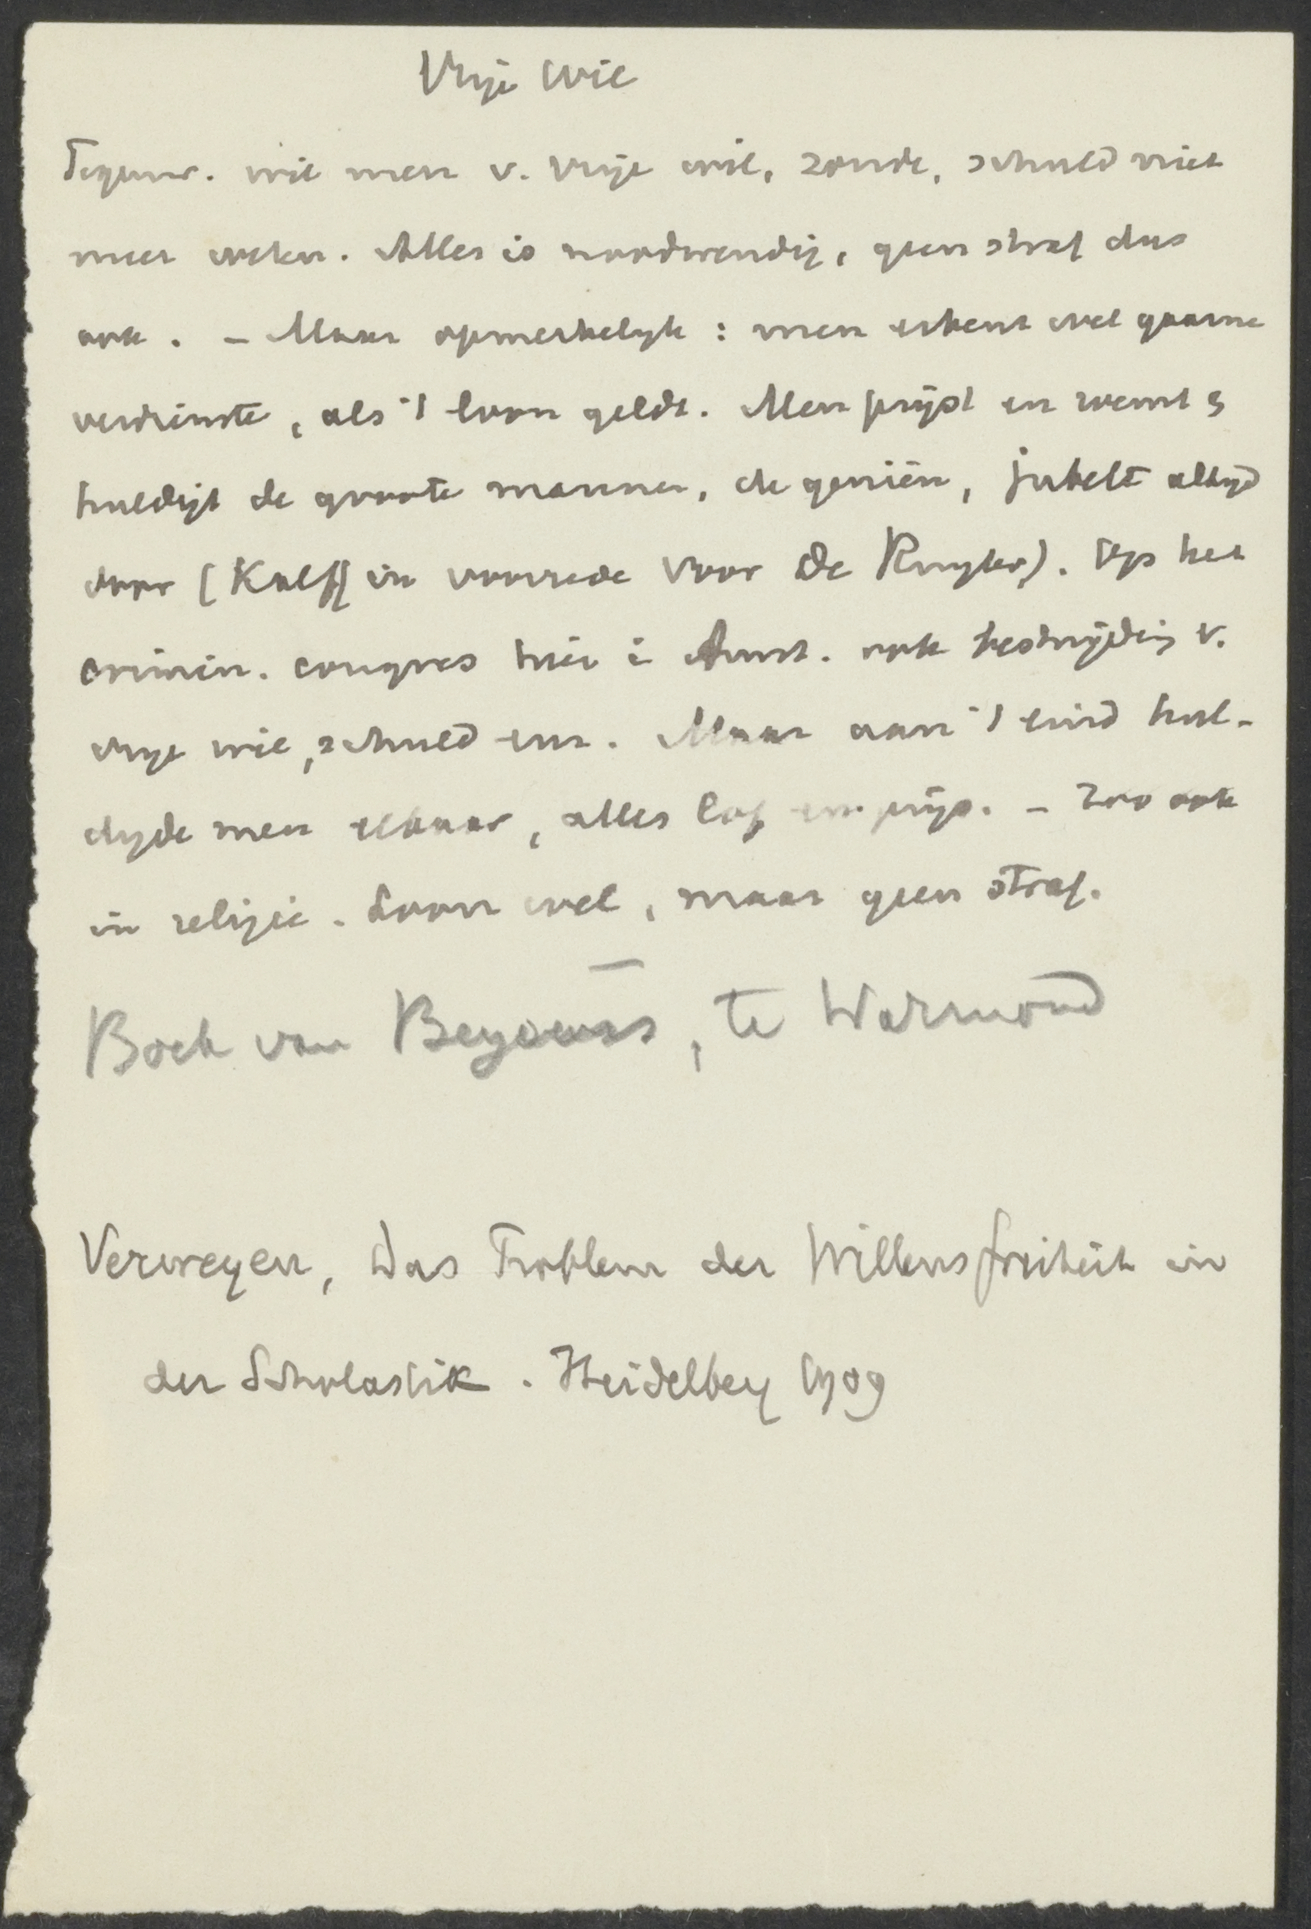 Vrije wil
Tegenw. wil men v. vrije wil, zonde, schuld niet
meer weten. Alles is noodwendig, geen straf dus
ook. – Maar opmerkelijk: men erkent wel gaarne
verdienste, als 't loon geldt. Men prijst en roemt &
huldigt de groote mannen, de genieën, jubelt altijd
door (Kalff in voorrede voor De Ruyter). Op het
crimin. congres hier i Amst. ook bestrijding v.
vrije wil, schuld enz. Maar aan 't eind hul-
digde men elkaar, alles lof en prijs. – Zoo ook
in religie. Loon wel, maar geen straf.
Boek van Beysens, te Warmond
Verweyen, Das Problem der Willensfreiheit in
der Scholastik. Heidelberg 1909